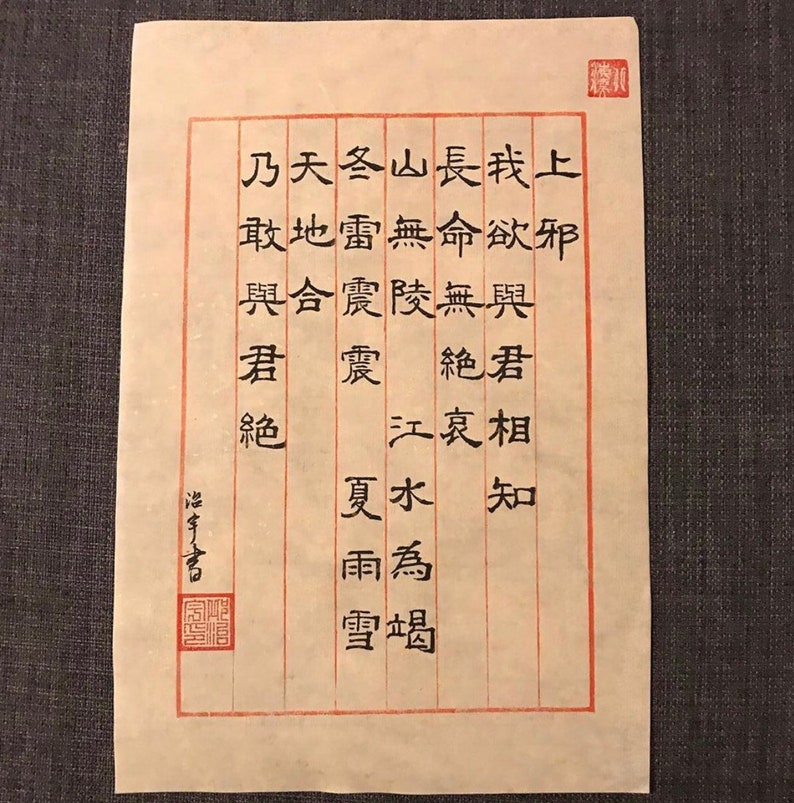 上邪
我欲與君相知
長命無絶哀
山無陵 江水為竭
冬雷震震 夏雨雪
天地合
乃敢與君絶
治宇書